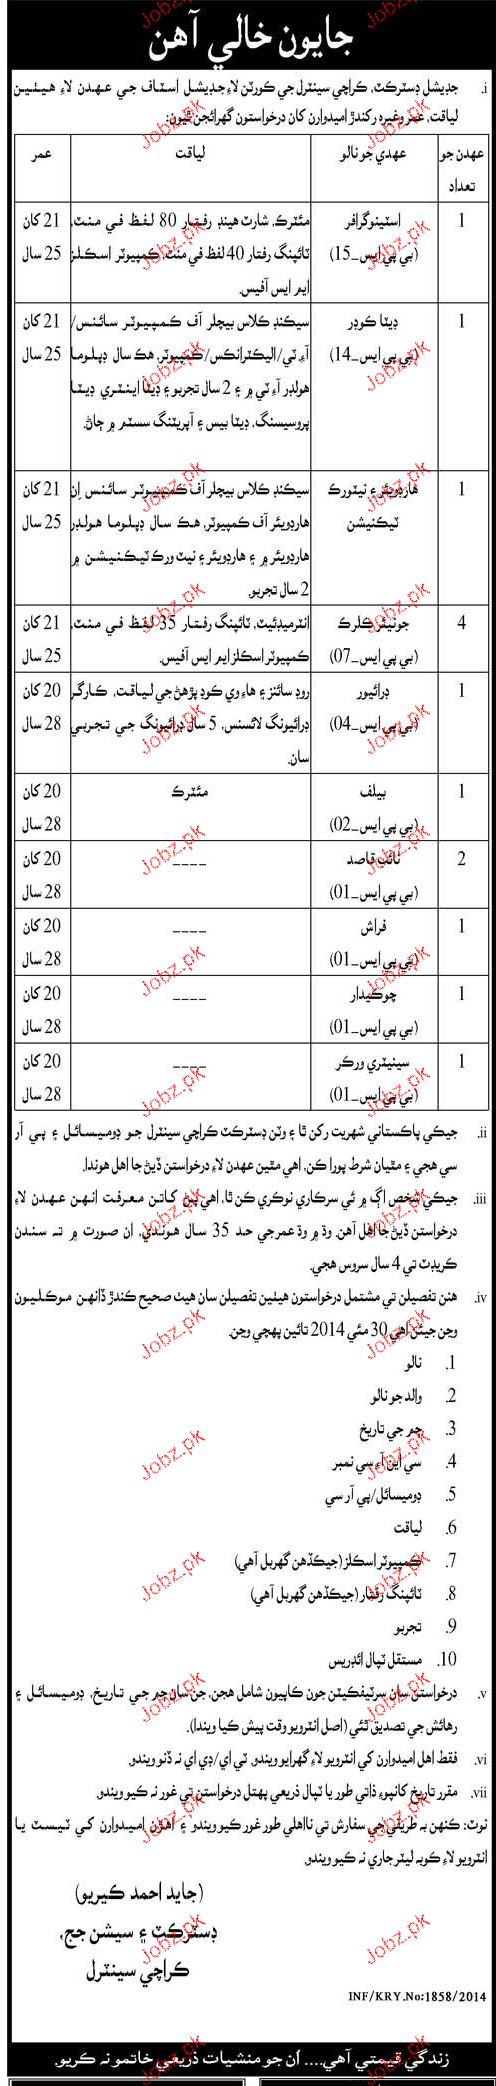 جايون خالي آهن
i. جڊيشل ڊسٽرڪٽ، ڪراچي سينٽرل جي ڪورٽن لاءِ جڊيشل اسٽاف جي عهدن لاءِ هيٺين
لياقت، عمر وغيره رکندڙ اميدوارن کان درخواستون گهرائجن ٿيون:
عهدن جو تعداد | عهدي جو نالو | لياقت | عمر
1 | اسٽينوگرافر | مئٽرڪ، شارٽ هينڊ رفتار 80 لفظ في منٽ، | 21 کان
(بي پي ايس_15) | ٽائپنگ رفتار 40 لفظ في منٽ، ڪمپيوٽر اسڪلز | 25 سال
ايم ايس آفيس.
1 | ڊيٽا ڪوڊر | سيڪنڊ ڪلاس بيچلر آف ڪمپيوٽر سائنس/ | 21 کان
(بي پي ايس_14) | آءِ ٽي/اليڪٽرانڪس/ڪمپيوٽر، هڪ سال ڊپلوما | 25 سال
هولڊر آءِ ٽي ۾ ۽ 2 سال تجربو ۽ ڊيٽا اينٽري ڊيٽا
پروسيسنگ، ڊيٽا بيس ۽ آپريٽنگ سسٽم ۾ ڄاڻ.
1 | هارڊويئر ۽ نيٽورڪ | سيڪنڊ ڪلاس بيچلر آف ڪمپيوٽر سائنس اِن | 21 کان
ٽيڪنيشن | هارڊويئر آف ڪمپيوٽر، هڪ سال ڊپلوما هولڊر | 25 سال
هارڊويئر ۾ ۽ هارڊويئر ۽ نيٽ ورڪ ٽيڪنيشن ۾
2 سال تجربو.
4 | جونيئر ڪلرڪ | انٽرميڊئيٽ، ٽائپنگ رفتار 35 لفظ في منٽ، | 21 کان
(بي پي ايس_07) | ڪمپيوٽر اسڪلز ايم ايس آفيس. | 25 سال
1 | ڊرائيور | روڊ سائنز ۽ هاءِ وي ڪوڊ پڙهڻ جي لياقت، ڪارگر | 20 کان
(بي پي ايس_04) | ڊرائيونگ لائسنس، 5 سال ڊرائيونگ جي تجربي | 28 سال
سان.
1 | بيلف | مئٽرڪ | 20 کان
(بي پي ايس_02) | 28 سال
2 | نائب قاصد | ---- | 20 کان
(بي پي ايس_01) | 28 سال
1 | فراش | ---- | 20 کان
(بي پي ايس_01) | 28 سال
1 | چوڪيدار | ---- | 20 کان
(بي پي ايس_01) | 28 سال
1 | سينيٽري ورڪر | ---- | 20 کان
(بي پي ايس_01) | 28 سال
ii. جيڪي پاڪستاني شهريت رکن ٿا ۽ وٽن ڊسٽرڪٽ ڪراچي سينٽرل جو ڊوميسائل ۽ پي آر
سي هجي ۽ مٿيان شرط پورا ڪن، اهي مٿين عهدن لاءِ درخواستن ڏيڻ جا اهل هوندا.
iii. جيڪي شخص اڳ ۾ ئي سرڪاري نوڪري ڪن ٿا، اهي پڻ کاتن معرفت انهن عهدن لاءِ
درخواستن ڏيڻ جا اهل آهن. وڌ ۾ وڌ عمر جي حد 35 سال هوندي، ان صورت ۾ ته سندن
ڪريڊٽ تي 4 سال سروس هجي.
iv. هنن تفصيلن تي مشتمل درخواستون هيٺين تفصيلن سان هيٺ صحيح ڪندڙ ڏانهن موڪليون
وڃن جيئن اهي 30 مئي 2014 تائين پهچي وڃن.
1. نالو
2. والد جو نالو
3. ڄم جي تاريخ
4. سي اين آءِ سي نمبر
5. ڊوميسائل/پي آر سي
6. لياقت
7. ڪمپيوٽر اسڪلز (جيڪڏهن گهربل آهي)
8. ٽائپنگ رفتار (جيڪڏهن گهربل آهي)
9. تجربو
10. مستقل ٽپال ائڊريس
v. درخواستن سان سرٽيفڪيٽن جون ڪاپيون شامل هجن، جن سان ڄم جي تاريخ، ڊوميسائل ۽
رهائش جي تصديق ٿئي (اصل انٽرويو وقت پيش ڪيا ويندا).
vi. فقط اهل اميدوارن کي انٽرويو لاءِ گهرايو ويندو. ٽي اي/ڊي اي نه ڏنو ويندو.
vii. مقرر تاريخ کانپوءِ ذاتي طور يا ٽپال ذريعي پهتل درخواستن تي غور نه ڪيو ويندو.
نوٽ: ڪنهن به طريقي جي سفارش تي نااهلي طور غور ڪيو ويندو ۽ اهڙن اميدوارن کي ٽيسٽ يا
انٽرويو لاءِ ڪو به ليٽر جاري نه ڪيو ويندو.
(جاويد احمد ڪيريو)
ڊسٽرڪٽ ۽ سيشن جج،
ڪراچي سينٽرل
INF/KRY.No:1858/2014
زندگي قيمتي آهي.... اُن جو منشيات ذريعي خاتمو نه ڪريو.
Jobz.pk